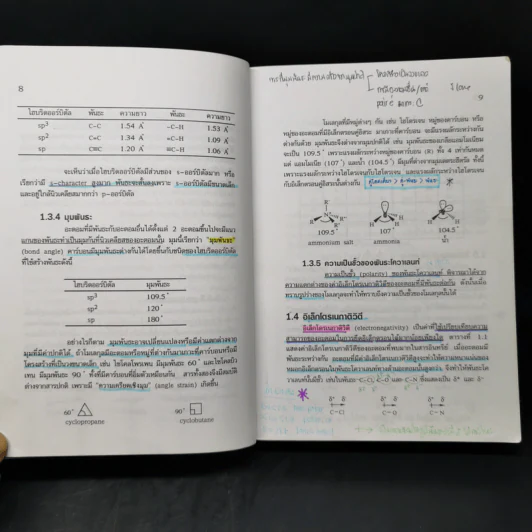 8
ไฮบริดออร์บิตัล พันธะ ความยาว พันธะ ความยาว
sp³ C-C 1.54 Å -C-H 1.53 Å
sp² C=C 1.34 Å =C-H 1.09 Å
sp C≡C 1.20 Å ≡C-H 1.06 Å
จะเห็นว่าเมื่อไฮบริดออร์บิตัลมีส่วนของ s-ออร์บิตัลมาก หรือ
เรียกว่ามี s-character สูงมาก พันธะจะสั้นลงเพราะ s-ออร์บิตัลมีขนาดเล็ก
และอยู่ใกล้นิวเคลียสมากกว่า p-ออร์บิตัล
1.3.4 มุมพันธะ
อะตอมที่มีพันธะกับอะตอมอื่นได้ตั้งแต่ 2 อะตอมขึ้นไปจะมีแนว
แกนของพันธะทำเป็นมุมกันที่นิวเคลียสของอะตอมนั้น มุมนี้เรียกว่า "มุมพันธะ"
(bond angle) คาร์บอนมีมุมพันธะต่างกันได้โดยขึ้นกับชนิดของไฮบริดออร์บิตัล
ที่ใช้สร้างพันธะดังนี้
ไฮบริดออร์บิตัล มุมพันธะ
sp³ 109.5°
sp² 120°
sp 180°
อย่างไรก็ตาม มุมพันธะอาจเปลี่ยนแปลงหรือมีค่าแตกต่างจาก
มุมที่มีค่าปกติได้ ถ้าโมเลกุลมีอะตอมหรือหมู่ที่ต่างกันมาเกาะที่คาร์บอนหรือมี
โครงสร้างที่เป็นวงขนาดเล็ก เช่น ไซโคลโพรเพน มีมุมพันธะ 60° และไซโคลบิว
เทน มีมุมพันธะ 90° ทั้งที่มีคาร์บอนที่อิ่มตัวเหมือนกัน สารทั้งสองจึงมีสมบัติ
ต่างจากสารปกติ เพราะมี "ความเครียดเชิงมุม" (angle strain) เกิดขึ้น
60° 90°
cyclopropane cyclobutane
9
โมเลกุลที่มีหมู่ต่างๆ กัน เช่น ไฮโดรเจน หมู่ของคาร์บอน หรือ
หมู่ของอะตอมที่มีอิเล็กตรอนคู่อิสระ มาเกาะที่คาร์บอน จะมีแรงผลักระหว่างกัน
ต่างกันด้วย มุมพันธะจึงต่างกันได้ เช่น มุมพันธะของเกลือแอมโมเนียม
จะเป็น 109.5° เพราะแรงผลักระหว่างหมู่ของคาร์บอน (R) ทั้ง 4 เท่ากันหมด
แต่ แอมโมเนีย (107°) และน้ำ (104.5°) มีมุมที่ต่างจากมุมเตตระฮีดรัล ทั้งนี้
เพราะแรงผลักระหว่างไฮโดรเจนกับไฮโดรเจน และแรงผลักระหว่างไฮโดรเจน
กับอิเล็กตรอนคู่อิสระนั้นต่างกัน
109.5° 107° 104.5°
ammonium salt ammonia น้ำ
1.3.5 ความเป็นขั้วของพันธะโควาเลนท์
ความเป็นขั้ว (polarity) ของพันธะโควาเลนท์ พิจารณาได้จาก
ความแตกต่างของค่าอิเล็กโตรเนกาติวิตีของอะตอมที่มีพันธะต่อกัน ดังนั้นเมื่อ
ทราบรูปร่างของโมเลกุลจะทำให้ทราบถึงความเป็นขั้วของโมเลกุลนั้นได้
1.4 อิเล็กโตรเนกาติวิตี
อิเล็กโตรเนกาติวิตี (electronegativity) เป็นค่าที่ใช้เปรียบเทียบความ
สามารถของอะตอมในการดึงอิเล็กตรอนได้มากน้อยเพียงใด ตารางที่ 1.1
แสดงค่าอิเล็กโตรเนกาติวิตีของอะตอมที่พบมากในสารอินทรีย์ เมื่ออะตอมมี
พันธะระหว่างกัน อะตอมที่มีค่าอิเล็กโตรเนกาติวิตีสูงจะทำให้ความหนาแน่นของ
หมอกอิเล็กตรอนในพันธะโควาเลนท์ทางด้านอะตอมนั้นสูงกว่า จึงทำให้พันธะโค
วาเลนท์นั้นมีขั้ว เช่นในพันธะ C-Cl, C-O และ C-N ซึ่งแสดงเป็น δ+ และ δ-
δ+ δ- δ+ δ- δ+ δ-
C-Cl C-O C-N